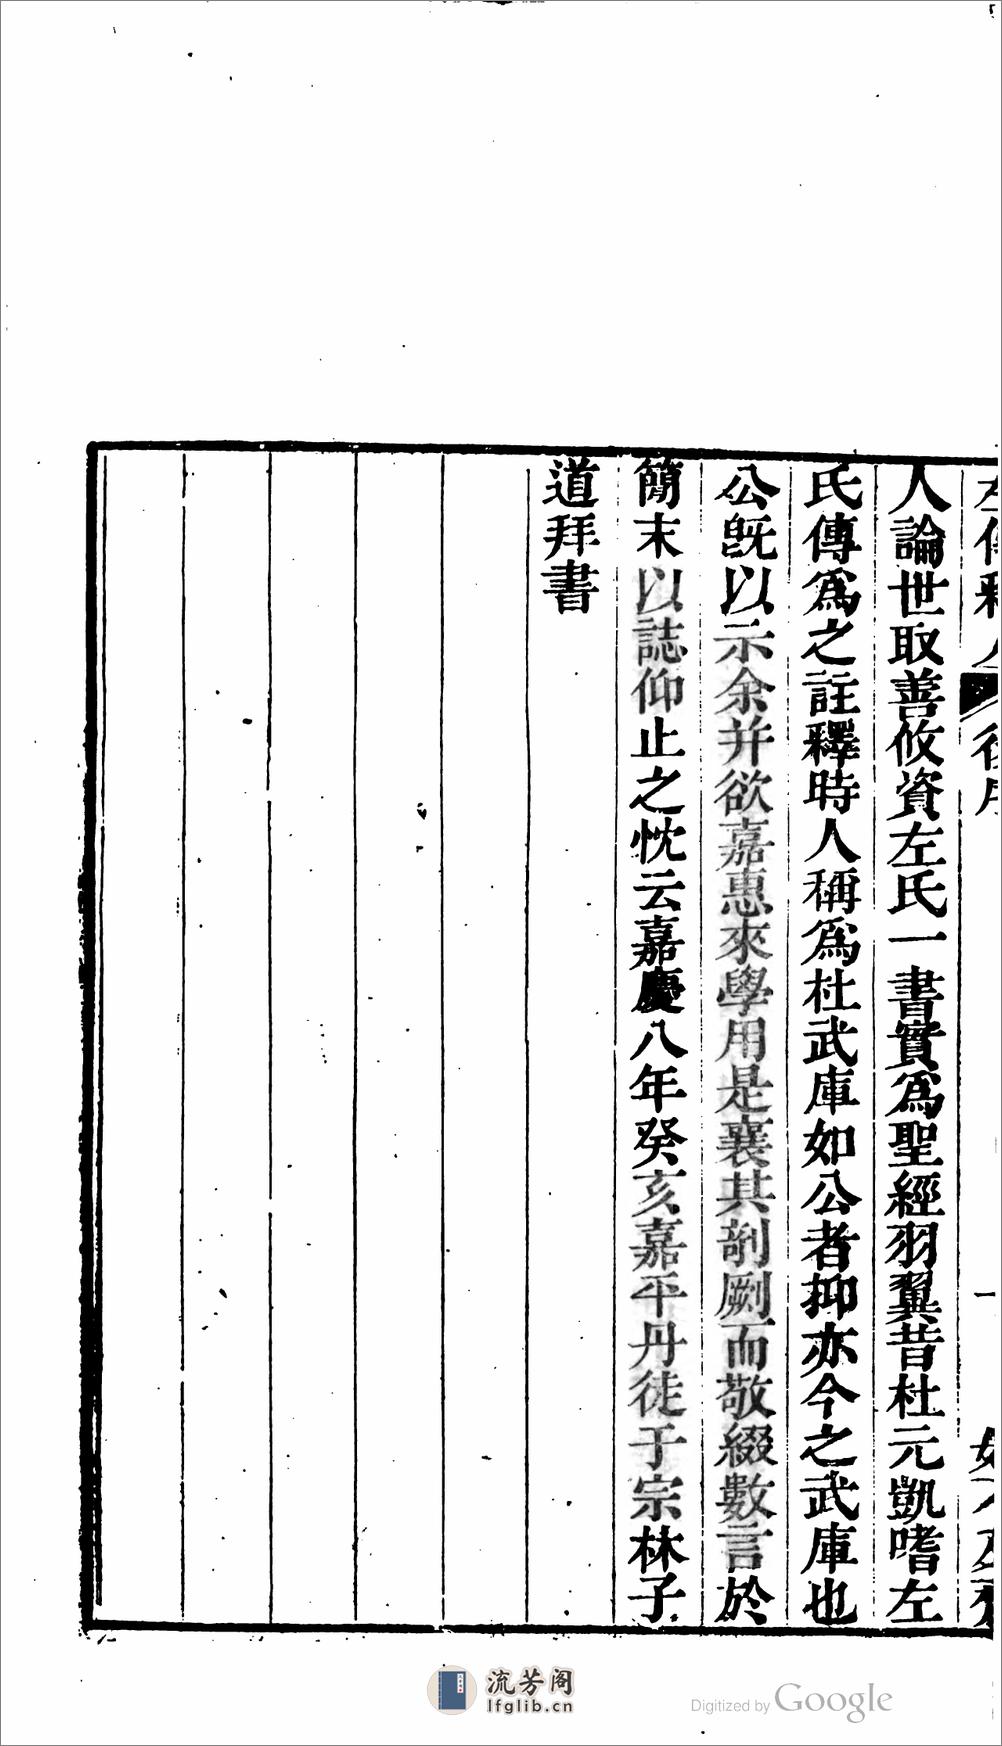 人論世取善攸資左氏一書實爲聖經羽翼昔杜元凱嗜左
氏傳爲之註釋時人稱爲杜武庫如公者抑亦今之武庫也
公旣以示余并欲嘉惠來學用是襄其剞劂而敬綴數言於
簡末以誌仰止之忱云嘉慶八年癸亥嘉平丹徒于宗林子
道拜書
流芳阁
lfglib.cn
Digitized by Google